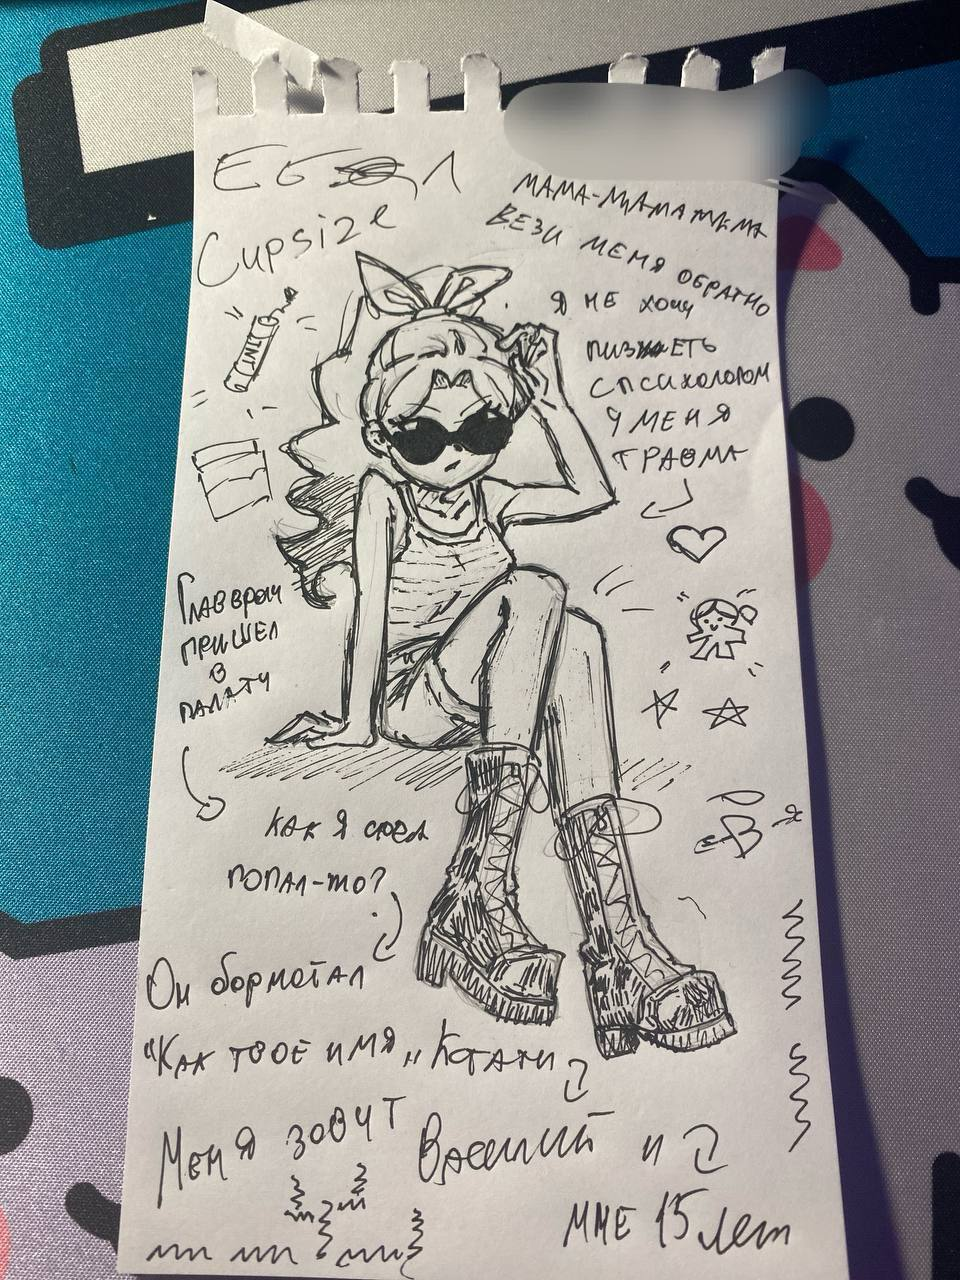 Cupsize
МАМА-МАМА МАМА
ВЕЗИ МЕНЯ ОБРАТНО
Я НЕ ХОЧУ
С ПСИХОЛОГОМ
У МЕНЯ
ТРАВМА
TNT
ГЛАВВРАЧ
ПРИШЕЛ
В
ПАЛАТУ
КАК Я СЮДА
ПОПАЛ-ТО?
Он бормотал
"КАК ТВОЕ ИМЯ" Кстати
Меня зовут Василий и
МНЕ 15 лет